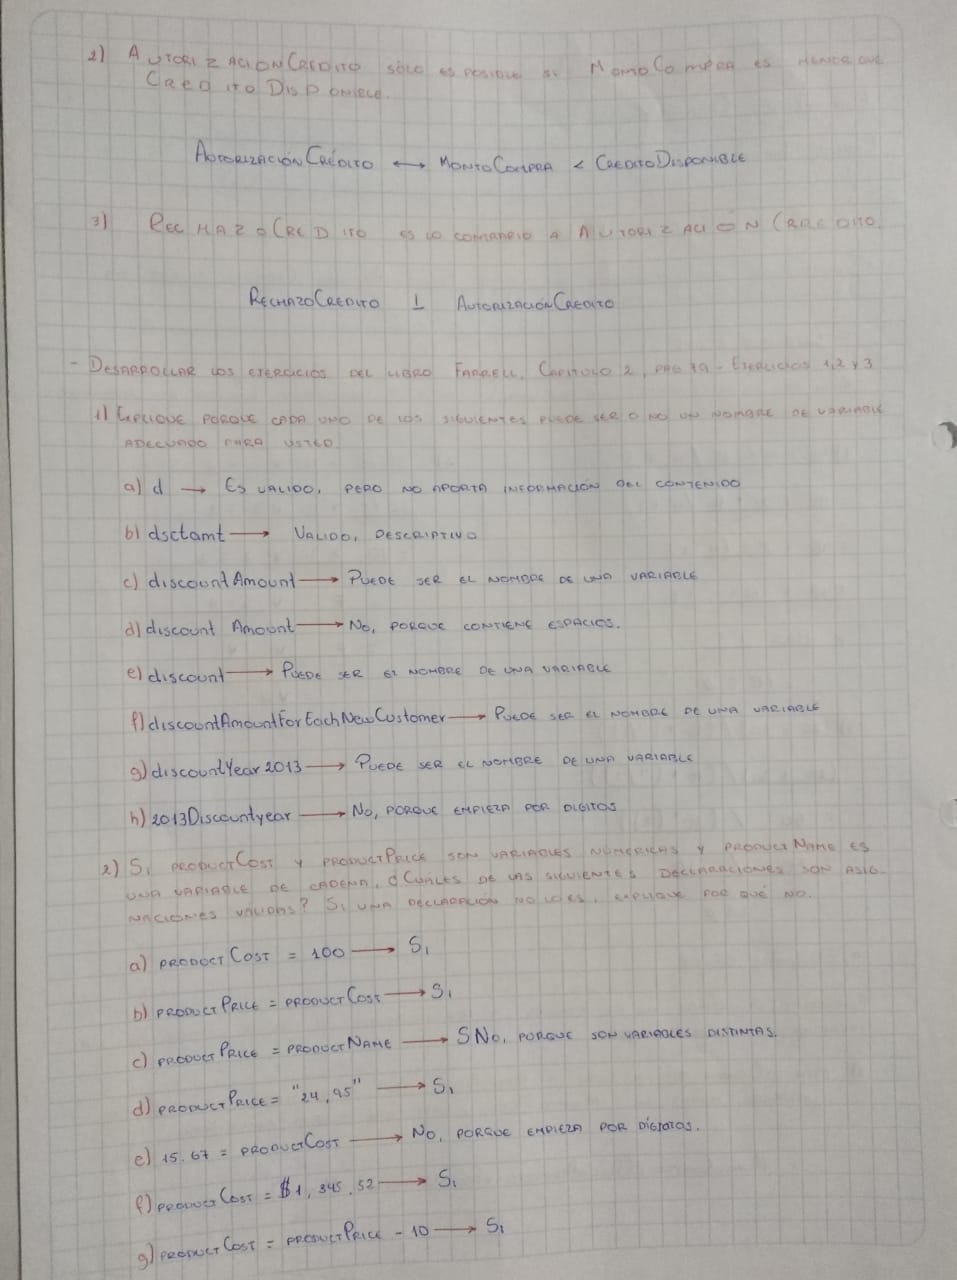 2) AUTORIZACIONCREDITO sólo es posible si MontoCompra es menor que
CreditoDisponible.
AutorizaciónCrédito ⟷ MontoCompra < CreditoDisponible
3) RechazoCredito es lo contrario a AUTORIZACIÓN CRREDITO.
RechazoCredito ⊥ AutorizaciónCredito
- Desarrollar los ejercicios del libro Farrell, Capitulo 2, pag 79 - Ejercicios 1,2 y 3
1) Explique porque cada uno de los siguientes puede ser o no un nombre de variable
adecuado para usted
a) d → Es valido, pero no aporta información del contenido
b) dsctamt → Valido, descriptivo
c) discountAmount → Puede ser el nombre de una variable
d) discount Amount → No, porque contiene espacios.
e) discount → Puede ser el nombre de una variable
f) discountAmountForEachNewCustomer → Puede ser el nombre de una variable
g) discountYear2013 → Puede ser el nombre de una variable
h) 2013Discountyear → No, porque empieza por digitos
2) Si productCost y productPrice son variables númericas y productName es
una variable de cadena, ¿Cuales de las siguientes declaraciones son asig-
naciones validas? Si una declaración no lo es, explique por qué no.
a) productCost = 100 → Si
b) productPrice = productCost → Si
c) productPrice = productName → SNo, porque son variables distintas.
d) productPrice = "24,95" → Si
e) 15.67 = productCost → No, porque empieza por digiotos.
f) productCost = $1,345.52 → Si
g) productCost = productPrice - 10 → Si